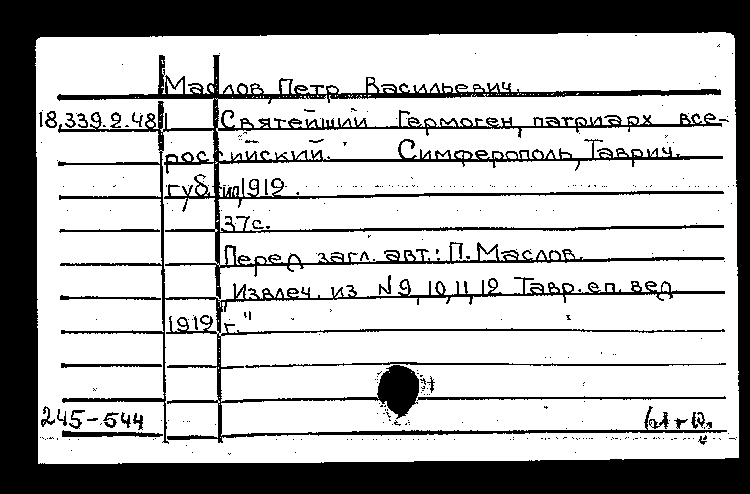 Маслов, Петр Васильевич.
18,339.2.481 Святейший Гермоген, патриарх все-
российский. Симферополь, Таврич.
губ. тип, 1919.
37с.
Перед загл. авт.: П. Маслов.
„Извлеч. из N 9, 10, 11, 12 Тавр. еп. вед.
1919 г."
245-544